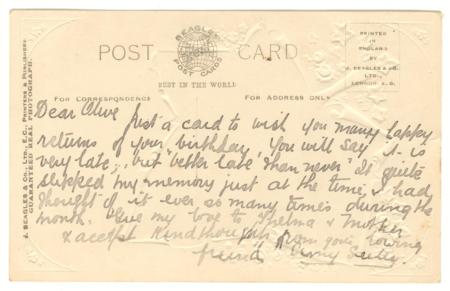 BEAGLES
POST CARDS
POST CARD
BEST IN THE WORLD
PRINTED
IN
ENGLAND
BY
J. BEAGLES & CO.
LTD.,
LONDON, E.C.
FOR CORRESPONDENCE
FOR ADDRESS ONLY
J. BEAGLES & CO., LTD., E.C., PRINTERS & PUBLISHERS.
GUARANTEED REAL PHOTOGRAPH.
Dear Olive
Just a card to wish you many happy
returns of your birthday. You will say it is
very late, but better late than never it quite
slipped my memory just at the time, I had
thought of it ever so many times during the
month. Give my love to Thelma & mother
& accept kind thoughts from your loving
friend,